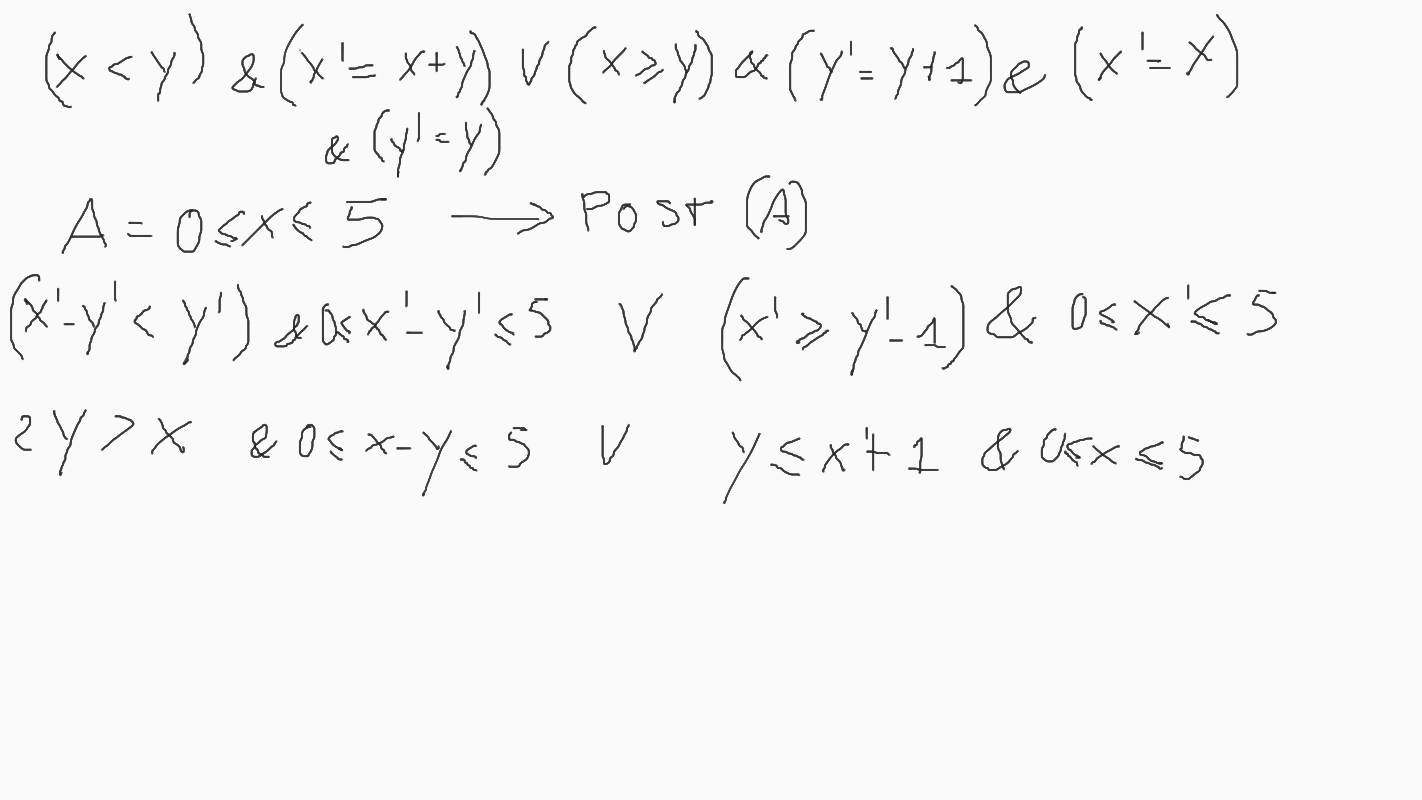 (x < y) & (x' = x+y) V (x ⩾ y) & (y' = y+1) & (x' = x)
& (y' = y)
A = 0 ≤ x ≤ 5 → Post (A)
(x'-y' < y') & 0 ≤ x'-y' ≤ 5 V (x' ⩾ y'-1) & 0 ≤ x' ≤ 5
2y > x & 0 ≤ x-y ≤ 5 V y ≤ x'+1 & 0 ≤ x ≤ 5